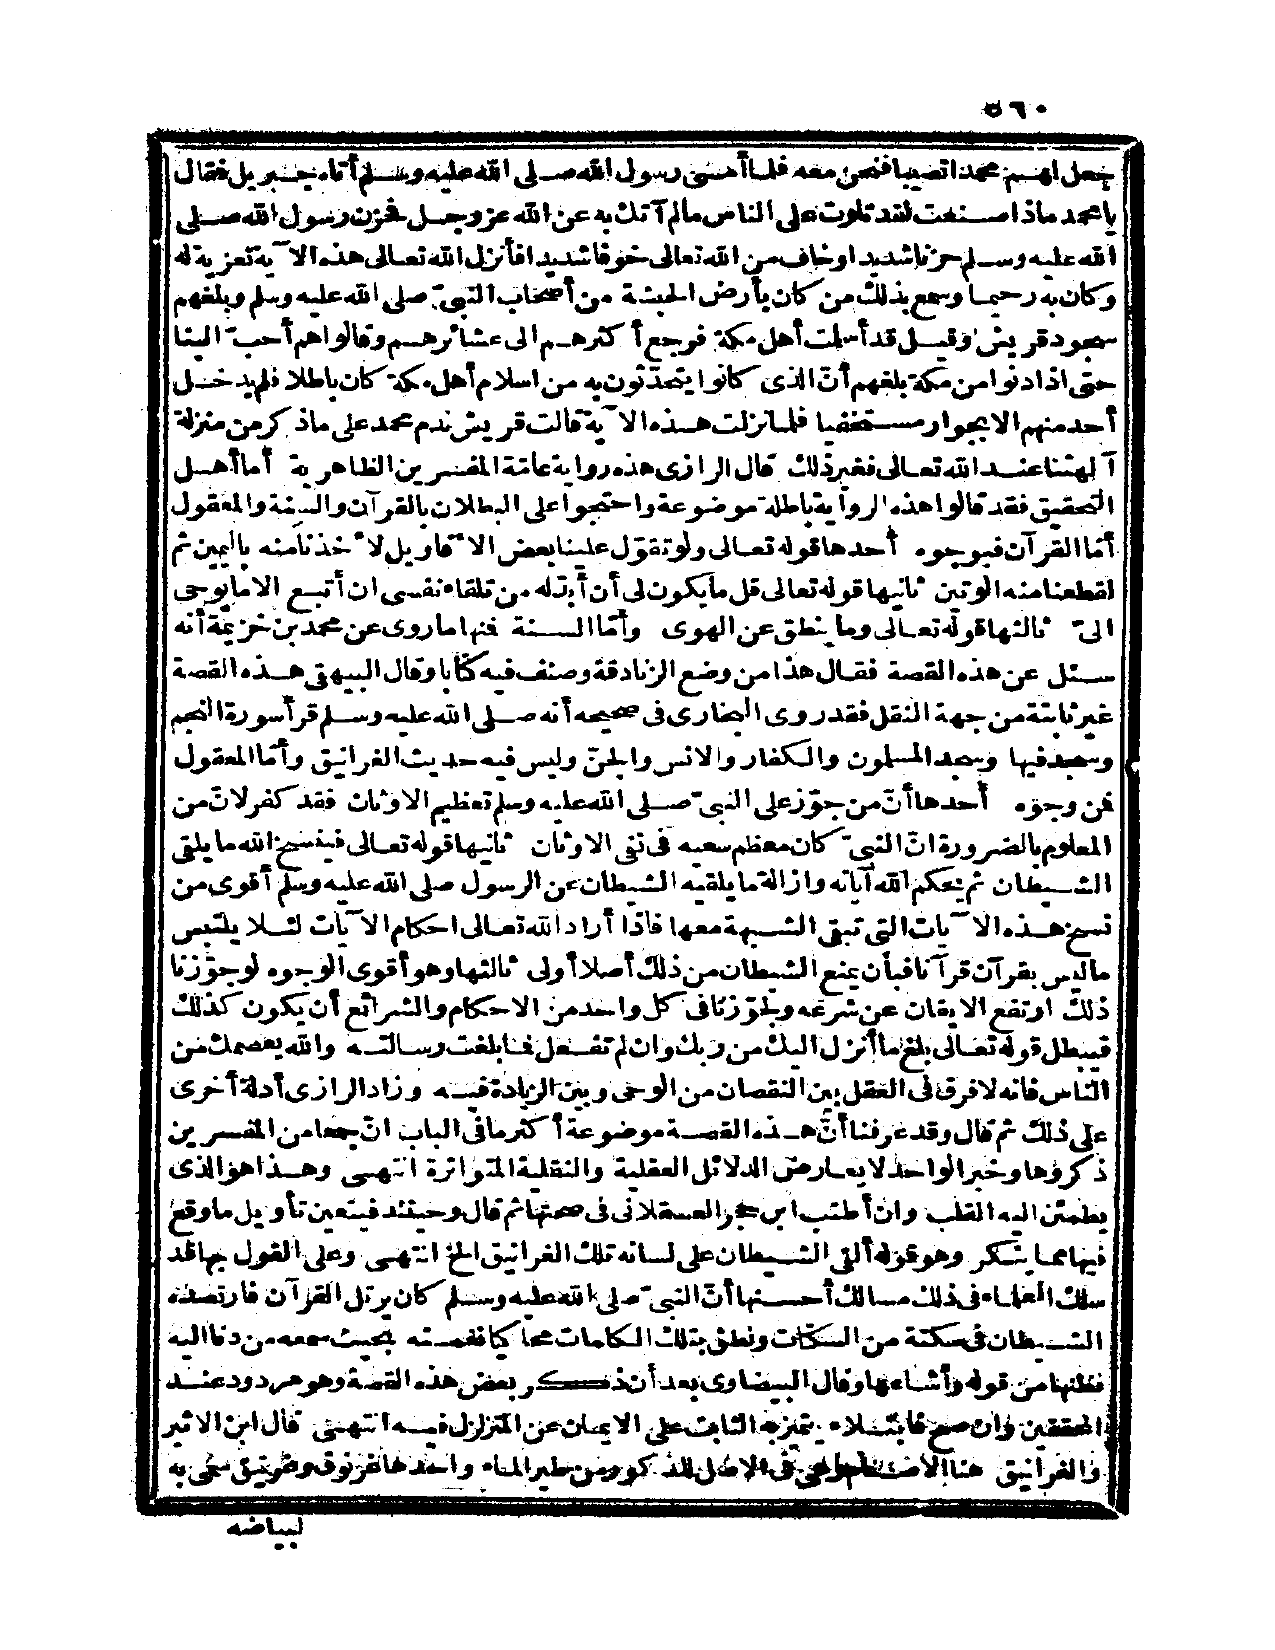 ٥٦٠
جعل لهم محمد نصيبا فنحن معه فلما أمسى رسول الله صلى الله عليه وسلم أتاه جبريل فقال
يا محمد ماذا صنعت لقد تلوت على الناس مالم آتك به عن الله عز وجل فحزن رسول الله صلى
الله عليه وسلم حزنا شديدا وخاف من الله تعالى خوفا شديدا فأنزل الله تعالى هذه الآية تعزية له
وكان به رحيما وسمع بذلك من كان بأرض الحبشة من أصحاب النبيّ صلى الله عليه وسلم وبلغهم
سجود قريش وقيل قد أسلمت أهل مكة فرجع أكثرهم الى عشائرهم وقالوا هم أحب الينا
حتى اذا دنوا من مكة بلغهم أنّ الذى كانوا يتحدّثون به من اسلام أهل مكة كان باطلا فلم يدخل
أحد منهم الا بجوار مستخفيا فلما نزلت هذه الآية قالت قريش ندم محمد على ماذكر من منزلة
آلهتنا عند الله تعالى فغير ذلك قال الرازى هذه رواية عامّة المفسرين الظاهرية أما أهل
التحقيق فقد قالوا هذه الرواية باطلة موضوعة واحتجوا على البطلان بالقرآن والسنة والمعقول
أمّا القرآن فبوجوه أحدها قوله تعالى ولو تقوّل علينا بعض الأقاويل لأخذنا منه باليمين ثم
لقطعنا منه الوتين ثانيها قوله تعالى قل ما يكون لى أن أبدّله من تلقاء نفسى ان أتبع الا ما يوحى
الىّ ثالثها قوله تعالى وما ينطق عن الهوى وأمّا السنة فنها ما روى عن محمد بن خزيمة أنه
سئل عن هذه القصة فقال هذا من وضع الزنادقة وصنف فيه كتابا وقال البيهقى هذه القصة
غير ثابتة من جهة النقل فقد روى البخارى فى صحيحه أنه صلى الله عليه وسلم قرأ سورة النجم
وسجد فيها وسجد المسلمون والكفار والانس والجنّ وليس فيه حديث الغرانيق وأمّا المعقول
فن وجوه أحدها أنّ من جوّز على النبيّ صلى الله عليه وسلم تعظيم الاوثان فقد كفر لانّ من
المعلوم بالضرورة انّ النبيّ كان معظم سعيه فى نفى الاوثان ثانيها قوله تعالى فينسخ الله ما يلقى
الشيطان ثم يحكم الله آياته وازالة ما يلقيه الشيطان عن الرسول صلى الله عليه وسلم أقوى من
نسخ هذه الآيات التى تبقى الشبهة معها فاذا أراد الله تعالى احكام الآيات لئلا يلتبس
ماليس بقرآن قرآنا فبأن يمنع الشيطان من ذلك أصلا أولى ثالثها وهو أقوى الوجوه لو جوّزنا
ذلك ارتفع الايقان عن شرعه ولجوّزنا فى كل واحد من الاحكام والشرائع أن يكون كذلك
فيبطل قوله تعالى بلغ ما أنزل اليك من ربك وان لم تفعل فما بلغت رسالته والله يعصمك من
الناس فانه لا فرق فى العقل بين النقصان من الوحى وبين الزيادة فيه وزاد الرازى أدلة أخرى
على ذلك ثم قال وقد عرفنا أنّ هذه القصة موضوعة أكثر ما فى الباب انّ جمعا من المفسرين
ذكروها وخبر الواحد لا يعارض الدلائل العقلية والنقلية المتواترة انتهى وهذا هو الذى
يطمئن اليه القلب وان أطنب ابن حجر العسقلانى فى صحتها ثم قال وحينئذ فيتعين تأويل ما وقع
فيها مما ينكر وهو قوله ألقى الشيطان على لسانه تلك الغرانيق الخ انتهى وعلى القول بها قد
سلك العلماء فى ذلك مسالك أحسنها أنّ النبيّ صلى الله عليه وسلم كان يرتل القرآن فارتصده
الشيطان فى سكتة من السكتات ونطق بتلك الكلمات محاكيا نغمته بحيث سمعه من دنا اليه
فظنها من قوله وأشاعها وقال البيضاوى بعد أن ذكر بعض هذه القصة وهو مردود عند
المحققين وان صح فابتلاء يتميز به الثابت على الايمان عن المتزلزل فيه انتهى قال ابن الاثير
والغرانيق هنا الاصنام وهى فى الاصل الذكور من طير الماء واحدها غرنوق وغرنيق سمى به
لبياضه